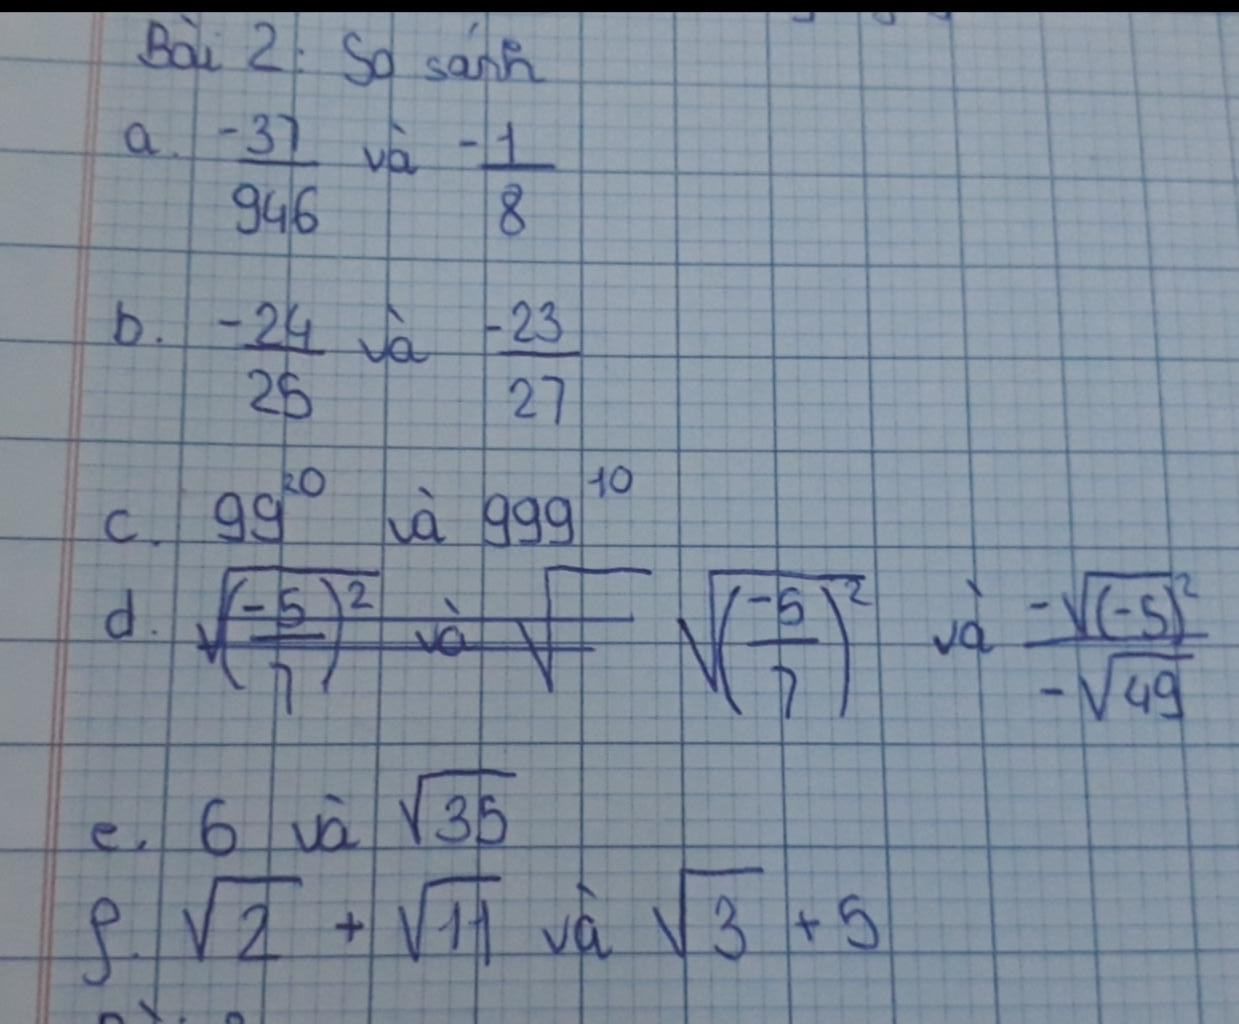 Bài 2: So sánh
a. -37/946 và -1/8
b. -24/25 và -23/27
c. 99^20 và 999^10
d. √(-5/7)^2 và √ √(-5/7)^2 và -√(-5)^2/-√49
e. 6 và √35
f. √2 + √11 và √3 + 5